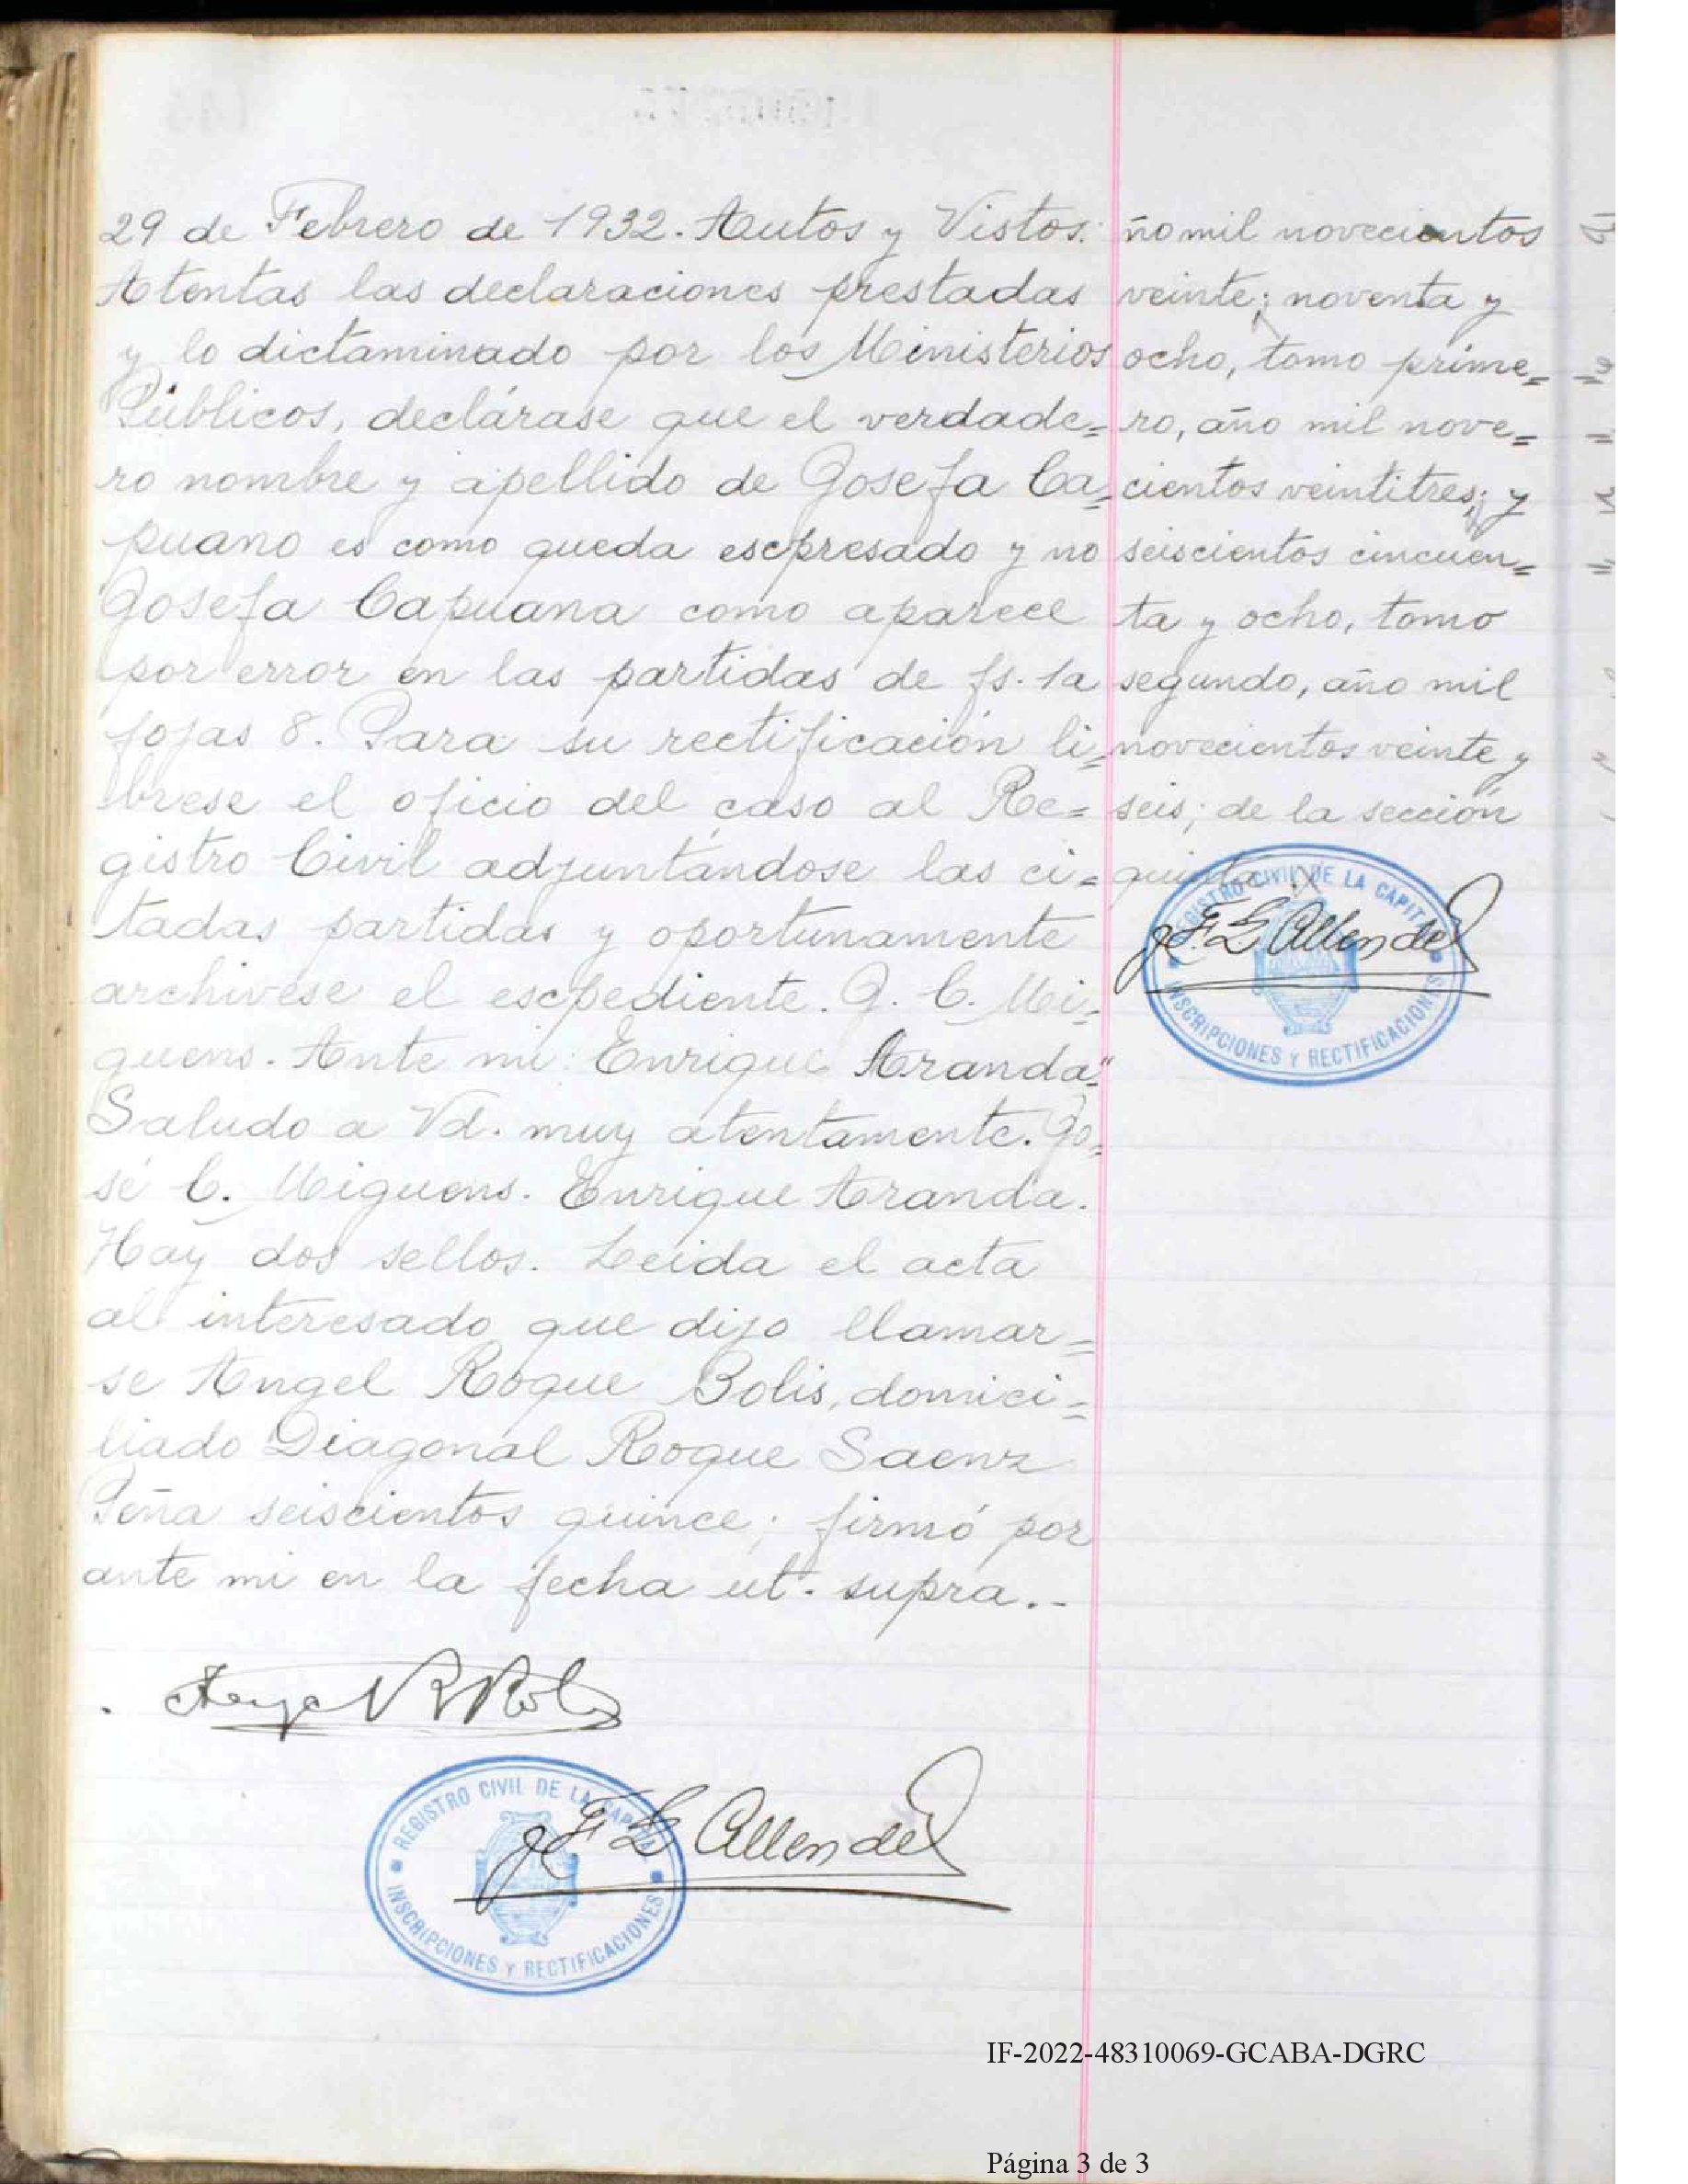 29 de Febrero de 1932. Autos y Vistos:
Atentas las declaraciones prestadas
y lo dictaminado por los Ministerios
Públicos, declárase que el verdade=
ro nombre y apellido de Josefa Ca=
puano es como queda escpresado y no
Josefa Capuana como aparece
por error en las partidas de fs. 1a
fojas 8. Para su rectificación lí=
brese el oficio del caso al Re=
gistro Civil adjuntándose las ci=
tadas partidas y oportunamente
archívese el escpediente. J. C. Mi=
guens. Ante mi: Enrique Aranda"
Saludo a Vd. muy atentamente. Jo=
sé C. Miguens. Enrique Aranda.
Hay dos sellos. Leida el acta
al interesado que dijo llamar=
se Angel Roque Bolis, domici=
liado Diagonal Roque Saenz
Peña seiscientos quince; firmó por
ante mi en la fecha ut. supra..-
REGISTRO CIVIL DE LA CAPITAL
INSCRIPCIONES Y RECTIFICACIONES
F. L. Allende
ño mil novecientos
veinte; noventa y
ocho, tomo prime=
ro, año mil nove=
cientos veintitres; y
seiscientos cincuen=
ta y ocho, tomo
segundo, año mil
novecientos veinte y
seis; de la sección
quinta.
REGISTRO CIVIL DE LA CAPITAL
F. L. Allende
INSCRIPCIONES Y RECTIFICACIONES
IF-2022-48310069-GCABA-DGRC
Página 3 de 3